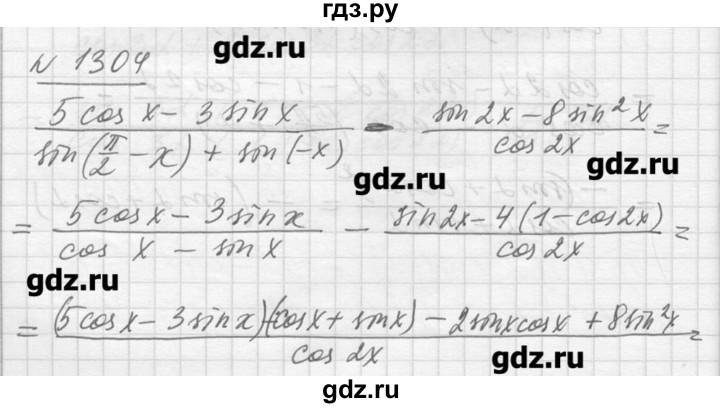 гдз.ру
N 1304
gdz.ru
(5 cos x − 3 sin x)/(sin(π/2 − x) + sin(−x)) − (sin 2x − 8 sin² x)/(cos 2x) =
gdz.ru
gdz.ru
= (5 cos x − 3 sin x)/(cos x − sin x) − (sin 2x − 4(1 − cos 2x))/(cos 2x) =
gdz.ru
= ((5 cos x − 3 sin x)(cos x + sin x) − 2 sin x cos x + 8 sin² x)/(cos 2x) =
gdz.ru
gdz.ru